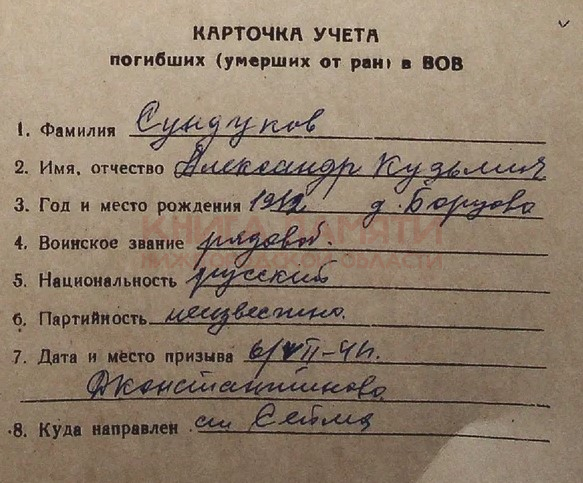 КАРТОЧКА УЧЕТА
погибших (умерших от ран) в ВОВ
1. Фамилия Сундуков
2. Имя, отчество Александр Кузьмич
3. Год и место рождения 1912 д. Борцово
КНИГА ПАМЯТИ
4. Воинское звание рядовой.
НИЖЕГОРОДСКОЙ ОБЛАСТИ
5. Национальность русский
6. Партийность неизвестно.
7. Дата и место призыва 6/VII-41г.
Дконстантиново
8. Куда направлен ст Сейма